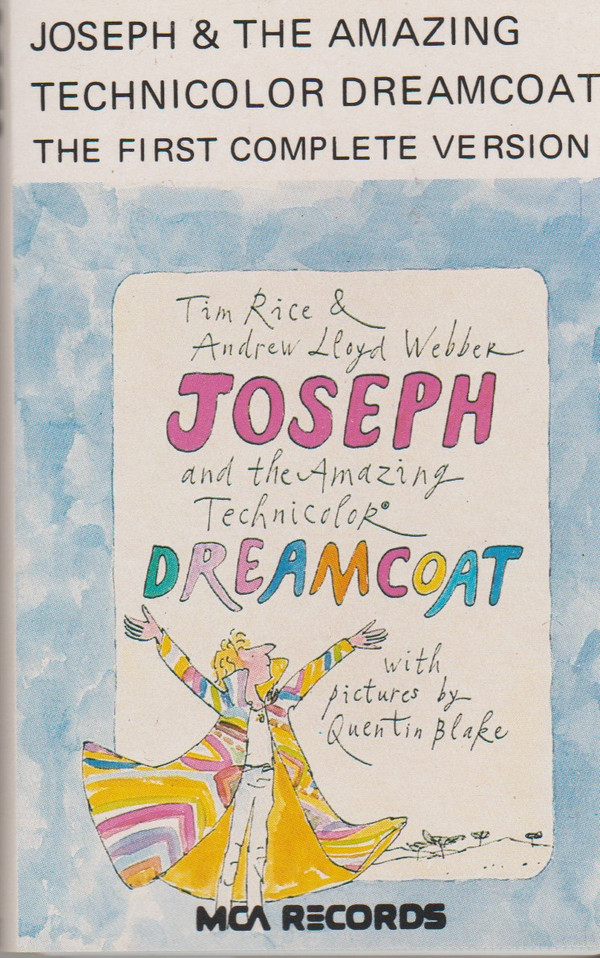 JOSEPH & THE AMAZING
TECHNICOLOR DREAMCOAT
THE FIRST COMPLETE VERSION
Tim Rice &
Andrew Lloyd Webber
JOSEPH
and the Amazing
Technicolor®
DREAMCOAT
with
pictures by
Quentin Blake
MCA RECORDS